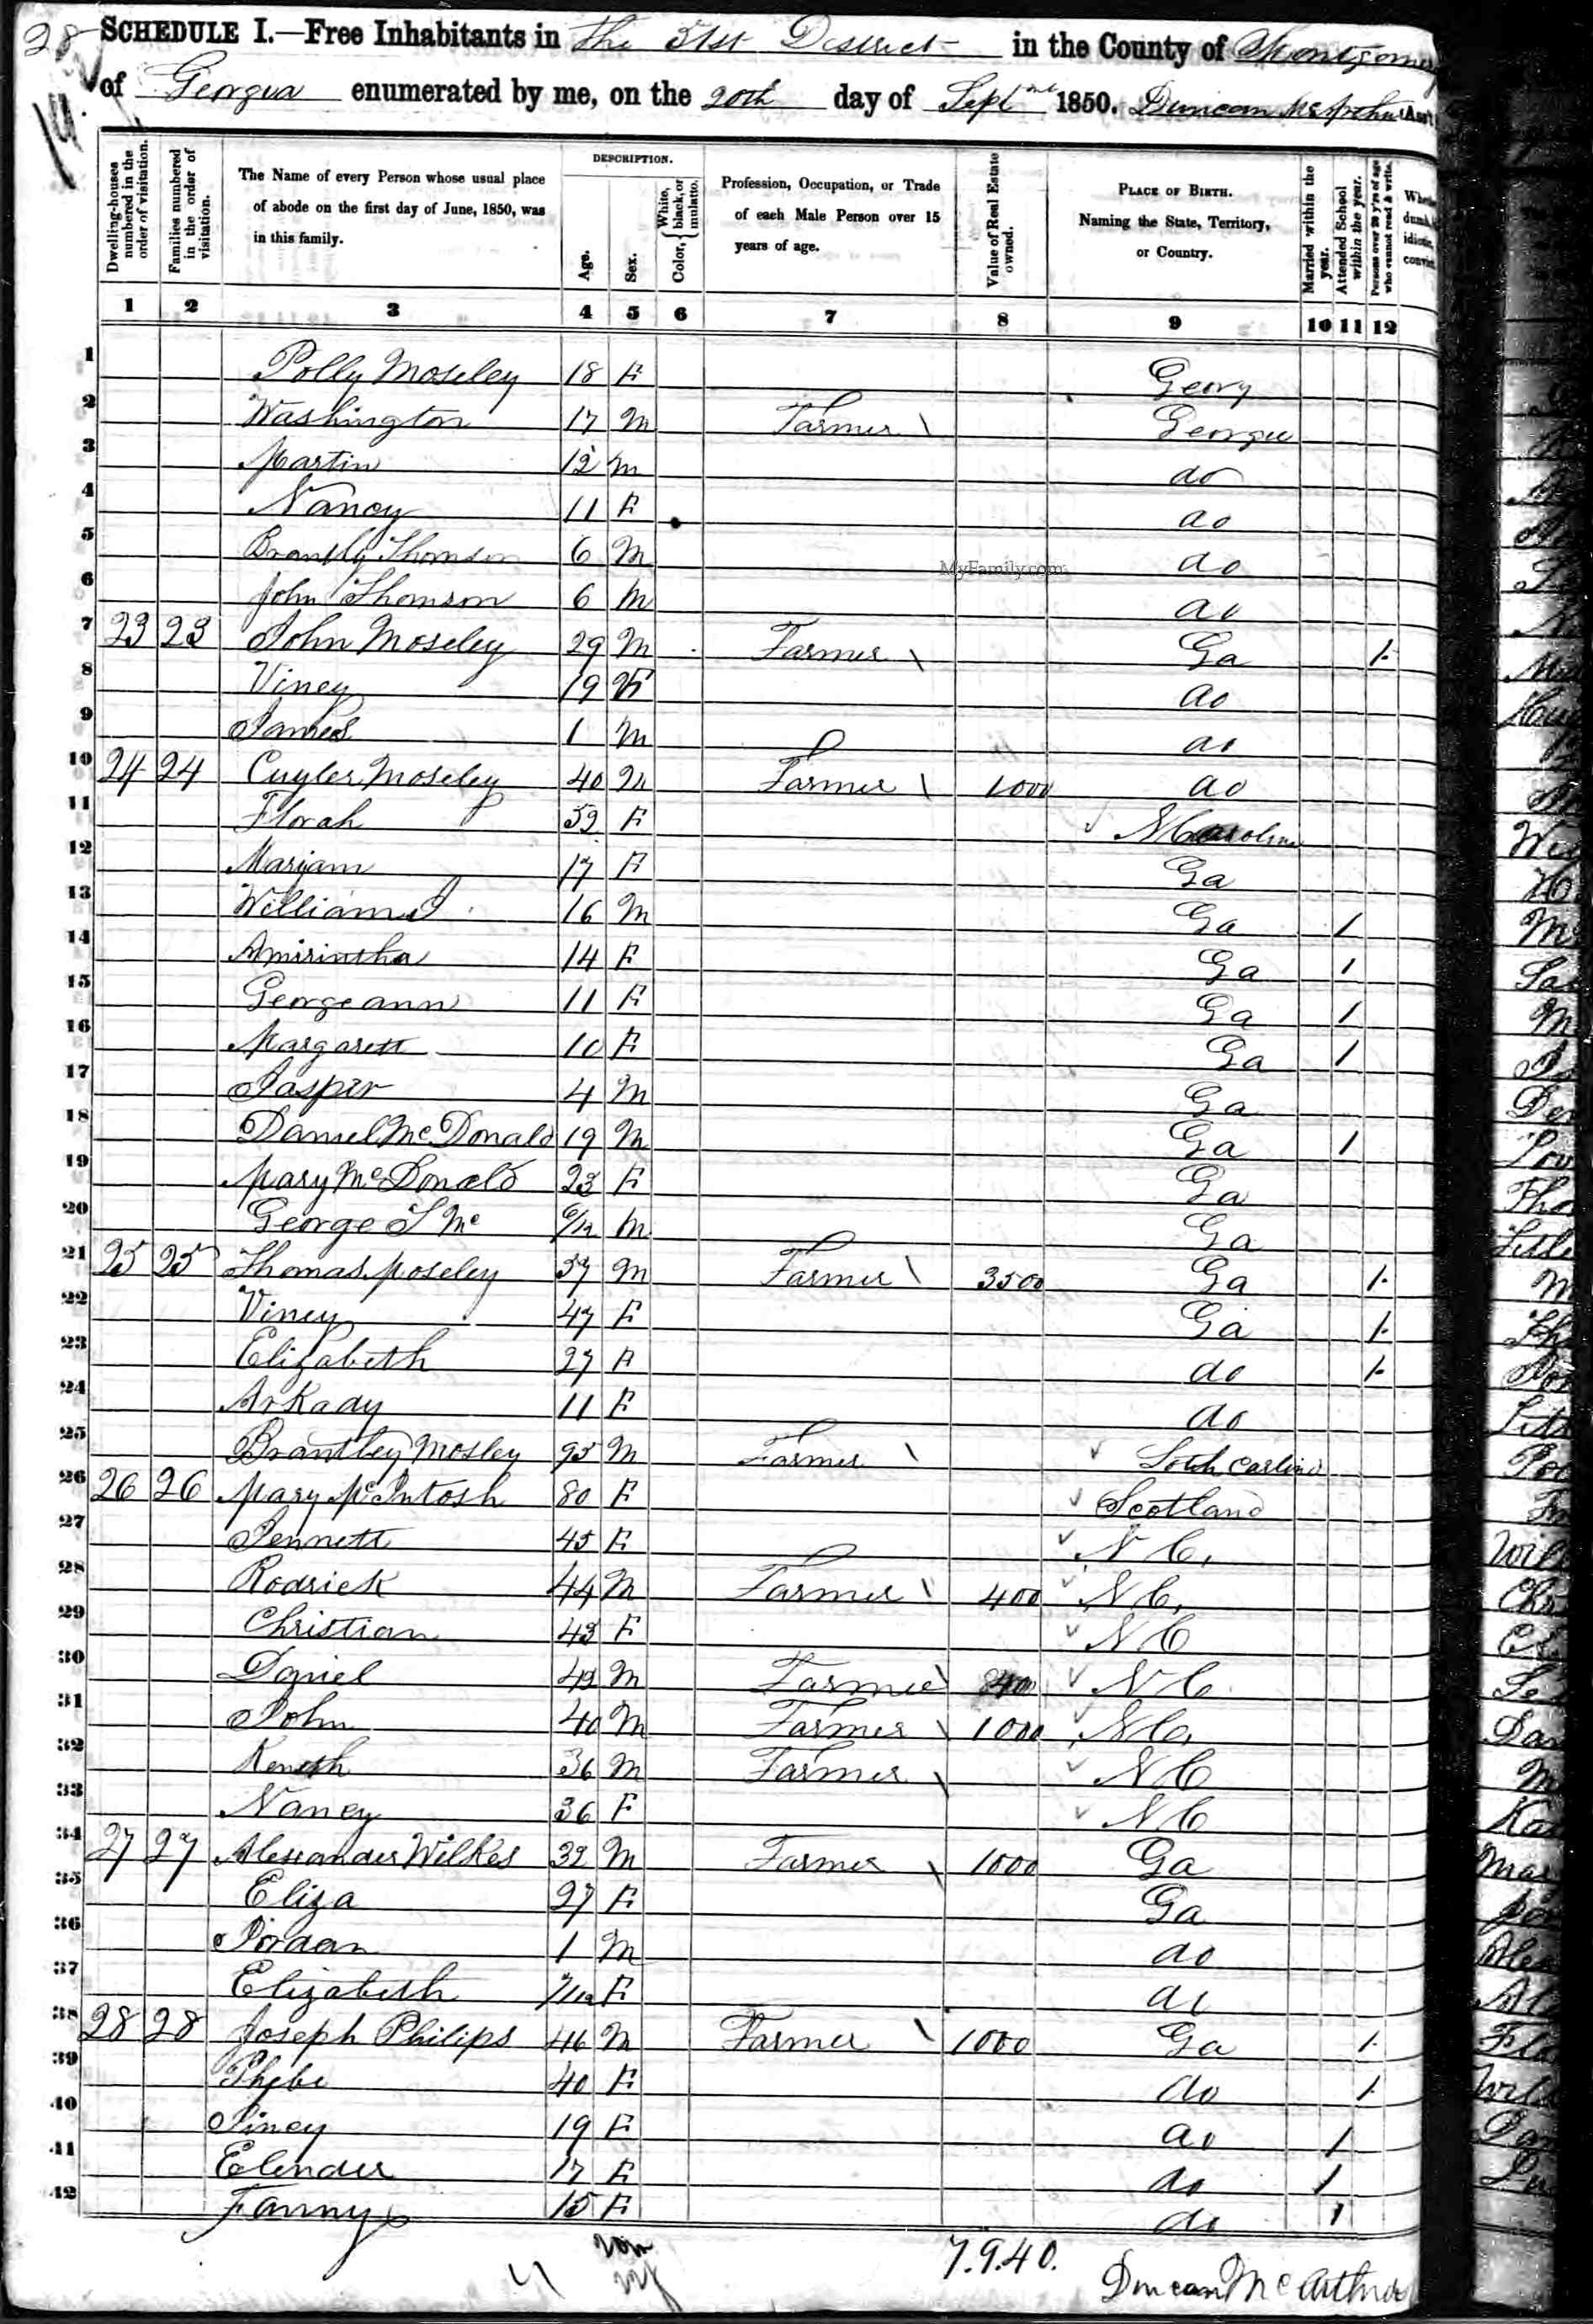 28
SCHEDULE I.—Free Inhabitants in The 51st District in the County of Montgomery
of Georgia enumerated by me, on the 20th day of Sept 1850. Duncan McArthur Ass't
Dwelling-houses numbered in the order of visitation.
Families numbered in the order of visitation.
The Name of every Person whose usual place of abode on the first day of June, 1850, was in this family.
DESCRIPTION.
Age.
Sex.
Color, { White, black, or mulatto.
Profession, Occupation, or Trade of each Male Person over 15 years of age.
Value of Real Estate owned.
PLACE OF BIRTH. Naming the State, Territory, or Country.
Married within the year.
Attended School within the year.
Persons over 20 y'rs of age who cannot read & write.
1 2 3 4 5 6 7 8 9 10 11 12
1 Polly Moseley 18 F Georg
2 Washington 17 M Farmer \ Georgia
3 Martin 12 M do
4 Nancy 11 F do
5 Brantly Thomson 6 M do
MyFamily.com
6 John Thomson 6 M do
7 23 23 John Moseley 29 M Farmer \ Ga 1
8 Viney 19 F do
9 James 1 M do
10 24 24 Cuyler Moseley 40 M Farmer \ 1000 do
11 Florah 39 F N Carolina
12 Marjam 17 F Ga
13 William 16 M Ga 1
14 Amirintha 14 F Ga 1
15 Georgeann 11 F Ga 1
16 Margarett 10 F Ga 1
17 Jasper 4 M Ga
18 Daniel McDonald 19 M Ga 1
19 Mary McDonald 23 F Ga
20 George T Mc 6/12 M Ga
21 25 25 Thomas Moseley 37 M Farmer \ 3500 Ga 1
22 Viney 47 F Ga 1
23 Elizabeth 27 F do 1
24 Arkady 11 F do
25 Brantley Mosley 95 M Farmer \ Soth Carlina
26 26 26 Mary McIntosh 80 F Scotland
27 Jennett 45 F N C.
28 Rodrick 44 M Farmer \ 400 N C.
29 Christian 43 F N C
30 Daniel 42 M Farmer \ 400 N C
31 John 40 M Farmer \ 1000 N C.
32 Keneth 36 M Farmer \ N C
33 Nancy 36 F N C
34 27 27 Alexander Wilkes 32 M Farmer \ 1000 Ga
35 Eliza 27 F Ga
36 Jordan 1 M do
37 Elizabeth 7/12 F do
38 28 28 Joseph Philips 46 M Farmer \ 1000 Ga 1
39 Phebe 40 F do 1
40 Piney 19 F do 1
41 Elender 17 F do 1
42 Fanny 15 F do 1
7.9.40.
Duncan McArthur